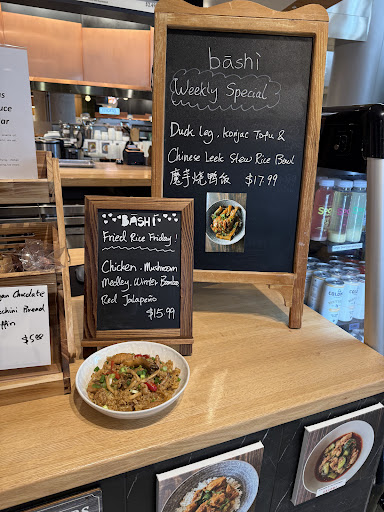 bāshì
Weekly Special
Duck Leg, Konjac Tofu &
Chinese Leek Stew Rice Bowl
魔芋烧鸭饭 $17.99
BASHÌ
Fried Rice Friday!
Chicken, Mushroom
Medley, Winter Bamboo
Red Jalapeño
$15.99
Chocolate
Bread
$5.00